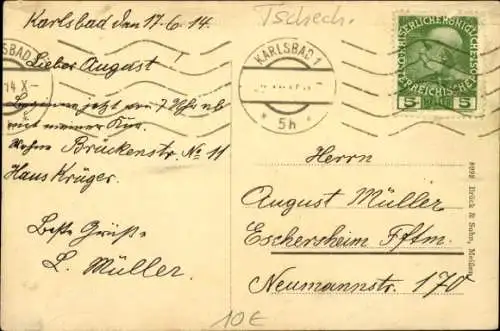 Karlsbad den 17.6.14.
Tschech.
Lieber August!
jetzt um 7 Uhr ab
mit meiner Kur.
Wohne Brückenstr. No 11
Hans Krüger.
Beste Grüße
L. Müller.
KARLSBAD 1
5h
KAISERLICHE KÖNIGLICHE
ÖSTERREICHISCHE POST
5 5
Herrn
August Müller
Eschersheim Fftm.
Neumannstr. 170
Brück & Sohn, Meißen
10€